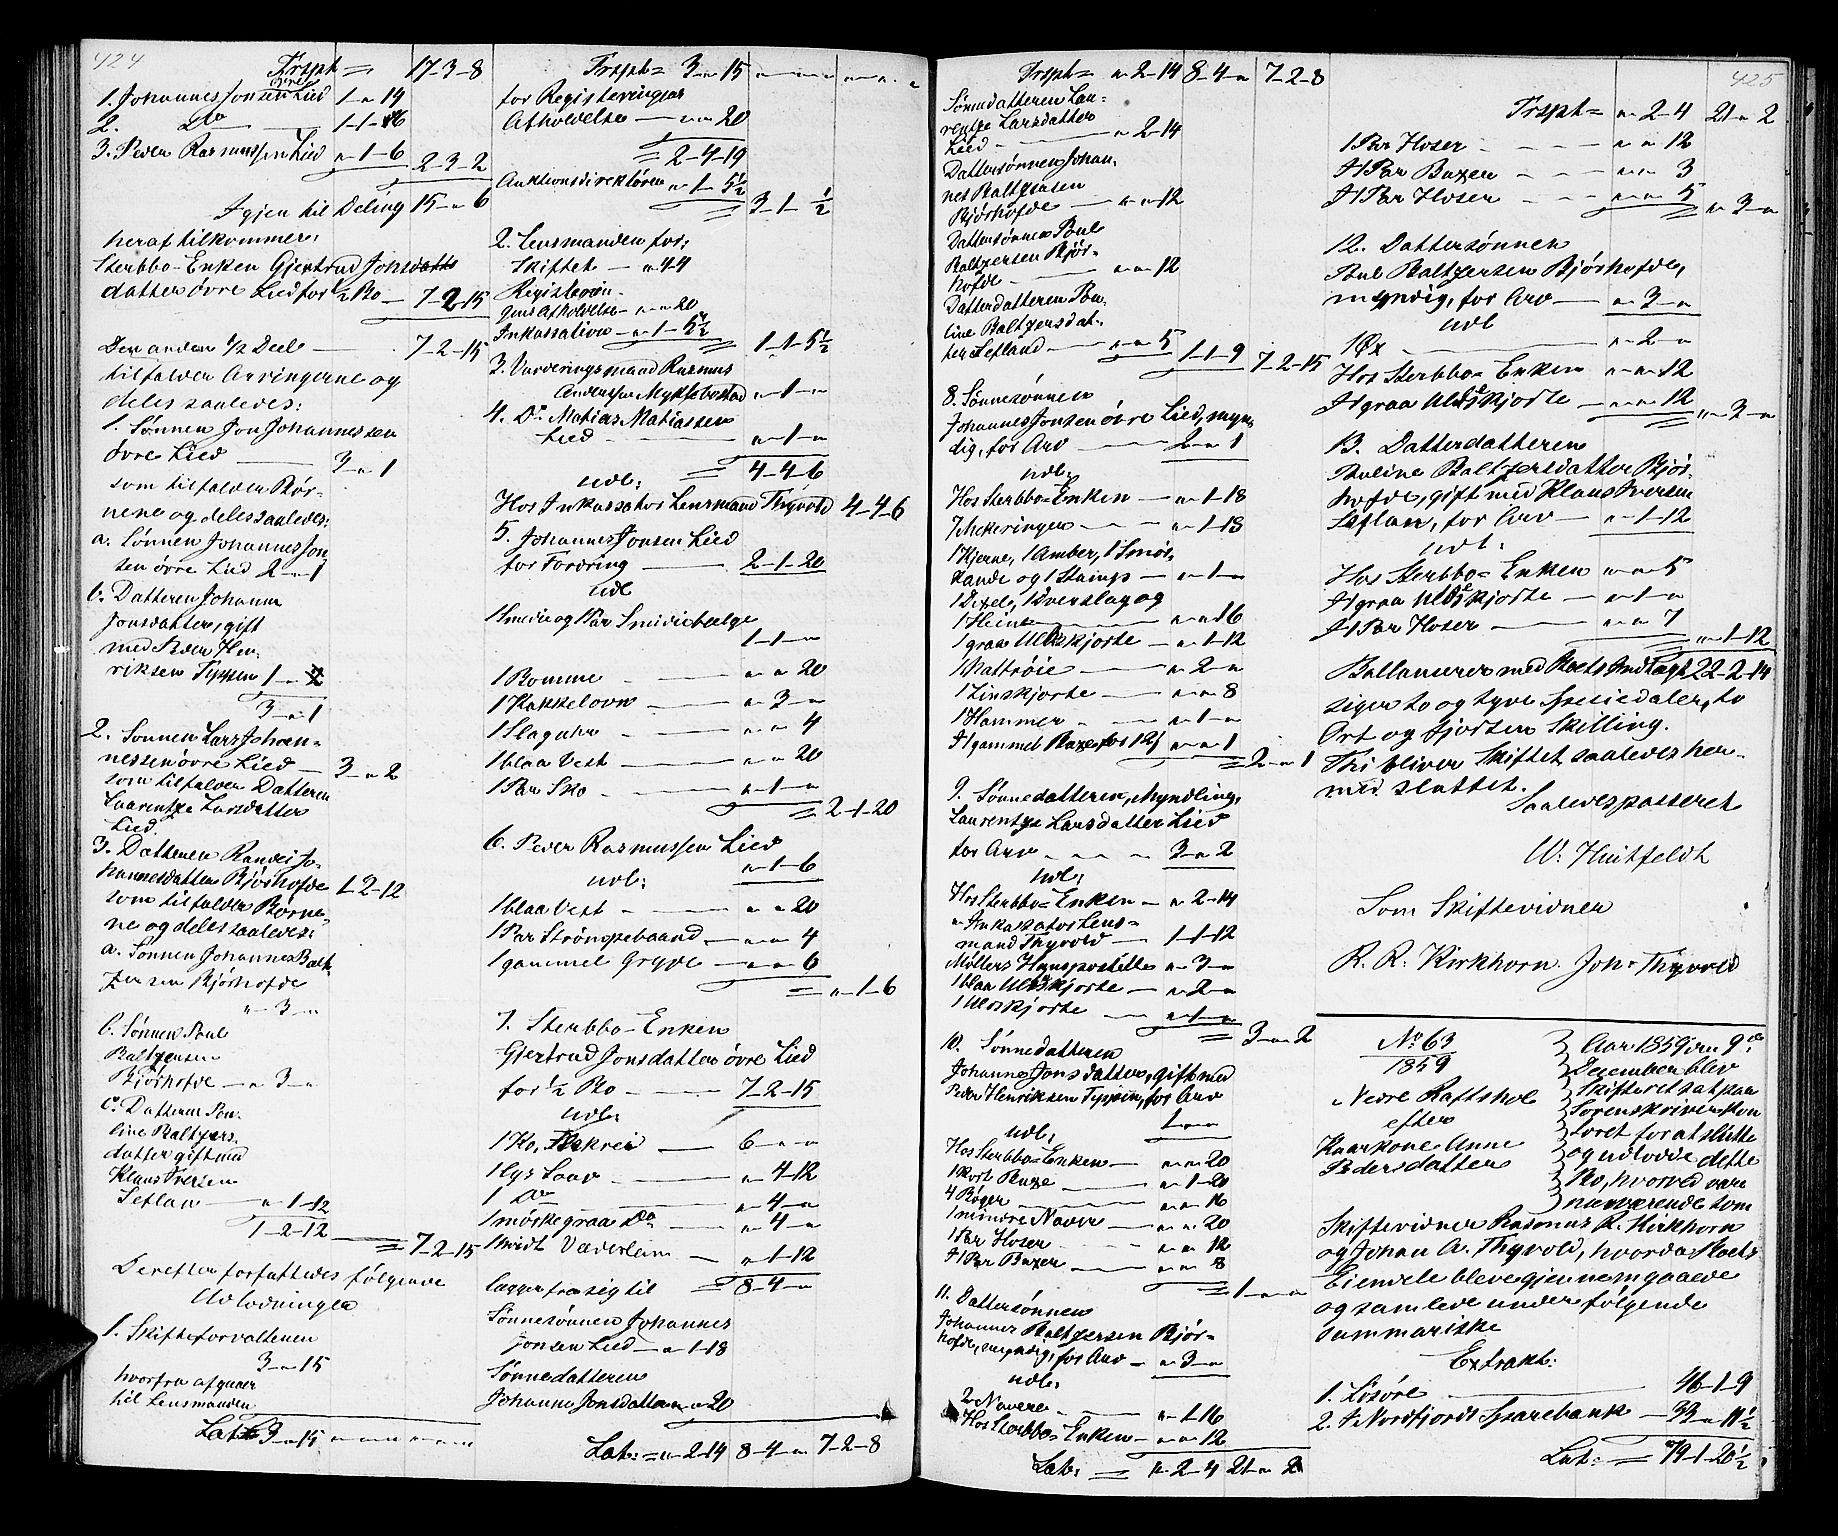 424
Trspt = 17-3-8
1. Johannes Jonsen Lied 1 " 14
2. Do 1-1-16
3. Peder Rasmussen Lied " 1-6 2-3-2
Igjen til Deling 15 " 6
heraf tilkommer:
Sterbbo-Enken Gjertrud Jons
datter øvre Lied for 1/2 Bo 7-2-15
Den anden 1/2 Deel 7-2-15
tilfalder Arvingerne og
deles saaledes:
1. Sønnen Jon Johannessen
øvre Lied 3 " 1
som tilfalder Bør-
nene og deles saaledes:
a. Sønnen Johannes Jon
sen øvre Lied 2 " 1
b. Datteren Johanne
Jonsdatter, gift
med Peder Hen-
riksen Tippen 1 "
3 " 1
2. Sønnen Lars Johan-
nessen øvre Lied 3 " 2
som tilfalder Datteren
Laurentze Larsdatter
Lied.
3. Datteren Randei Jo-
hannesdatter Bjørhofde 1-2-12
som tilfalder Børne-
ne og deles saaledes:
a. Sønnen Johannes Balt
zersen Bjørhofde
" 3 "
b. Sønnen Poul
Baltzersen
Bjørhofde " 3 "
c. Datteren Pou-
line Baltzers-
datter gift med
Klaus Iversen
Leflan " 1-12
1-2-12 7-2-15
Derefter forfattedes følgende
Udlodninger
1. Skifteforvalteren
3 " 15
hvorfra afgaaer
til Lensmanden
Lat. 3 " 15
Trspt = 3 " 15
for Registeringens
Afholdelse " " 20
= 2-4-19
Auktionsdirektøren " 1-5½
3-1-½
2. Lensmanden for:
Skiftet " 4-4
Registerin-
gens Afholdelse " " 20
Inkassation " 1-5½
1-1-5½
3. Vurderingsmand Rasmus
Andersen Myklebostad " 1 "
4. Do Matias Matiassen
Lied " 1 "
udl: = 4-4-6
Hos Inkassator Lensmand Thyvold 4-4-6
5. Johannes Jonsen Lied
for Fordring 2-1-20
udl
1 Smedie og 1 Par Smediebælge
1-1 "
1 Bomme " " 20
1 Kakkelovn " 3 "
1 Slaguhr " " 4
1 blaa Vest " " 20
1 Par Sko " 1 "
= 2-1-20
6. Peder Rasmussen Lied
" 1-6
udl:
1 blaa Vest " " 20
1 Par Strømpebaand " " 4
1 gammel Gryde " " 6
= " 1-6
7. Sterbbo-Enken
Gjertrud Jonsdatter øvre Lied
for 1/2 Bo 7-2-15
udl:
1 Ko, Flekrei 6 " "
1 Gjs Sauv " 4-12
1 Do " 4 "
1 mørkegraa Do " 4 "
1 hvidt Væderlam " 1-12
lægger fra sig til = 8-4 "
Sønnesønnen Johannes
Jonsen Lied " 1-18
Sønnedatteren
Johanne Jonsdatter " 20
Lat: = " 2-14 8-4 " 7-2-8
Trspt = " 2-14 8-4 " 7-2-8
Sønnedatteren Lau-
rentze Larsdatter
Lied " 2-14
Dattersønnen Johan-
nes Baltzersen
Bjørhofde " " 12
Dattersønnen Poul
Baltzersen Bjør-
hofde " " 12
Datterdatteren Pou-
line Baltzersdat-
ter Lefland " " 5 1-1-9 7-2-15
8. Sønnesønnen
Johannes Jonsen øvre Lied, myn-
dig, for Arv 2 " 1
udl:
Hos Sterbbo-Enken " 1-18
7 Mekeringer " 1-18
1 Kjerne, 1 Amber, 1 Smør-
kande og 1 Stamp " 1 "
1 Dexel, 1 Overslag og
1 Hein " " 16
1 graa Uldskjorte " 1-12
1 Nattrøie " 2 "
1 Linskjorte " " 8
1 Hammer " 1 "
1 gammel Buxe for 12f " " 1
= 2 " 1
9. Sønnedatteren, Myndling,
Laurentze Larsdatter Lied
for Arv 3 " 2
udl:
Hos Sterbbo-Enken " 2-14
" Inkassator Lens-
mand Thyvold 1-1-12
Møllers Huuspostille " 3 "
1 blaa Uldskjorte " 2 "
1 Uldskjorte " 1 "
= 3 " 2
10. Sønnedatteren
Johanne Jonsdatter, gift med
Peder Henriksen Tippen, for Arv
1 " "
udl:
Hos Sterbbo-Enken " " 20
1 kort Buxe " 1-20
4 Bøger " " 16
1 mindre Naver " " 20
1 Par Hoser " " 12
1 Par Buxer " " 8
= 1 " "
11. Dattersønnen
Johannes Baltzersen Bjør-
hofde, myndig, for Arv " 3 "
udl:
2 Navere " 1-16
Hos Sterbbo-Enken " " 12
Lat: = " 2-4 21 " 2
425
Trspt = " 2-4 21 " 2
1 Par Hoser " " 12
1 Par Buxer " " 3
1 Par Hoser " " 5
= " 3 "
12. Dattersønnen
Poul Baltzersen Bjørhofde,
myndig, for Arv " 3 "
udl
1 Øx " 2 "
Hos Sterbbo-Enken " " 12
1 graa Uldskjorte " " 12
" 3 "
13. Datterdatteren
Pauline Baltzersdatter Bjør-
hofde, gift med Klaus Iversen
Leflan, for Arv " 1-12
udl:
Hos Sterbbo-Enken " " 5
1 graa Uldskjorte " 1 "
1 Par Hoser " " 7
" 1-12
Ballancerer med Boets Indtægt 22-2-14
siger to og tyve Speciedaler, to
Ort og fjorten Skilling.
Thi bliver Skiftet saaledes her-
med sluttet.
Saaledes passeret
W. Huitfeldt
Som Skiftevidner
R. R. Kirkhorn Joh. Thyvold
No 63
1859
Nedre Raftshol
efter
Huarkone Anne
Pedersdatter
Aar 1859 den 9de
December blev
Skifteret sat paa
Sorenskriverkon
toret for at slutte
og udlodde dette
Bo, hvorved vare
nærværende som
Skiftevidner Rasmus R. Kirkhorn
og Johan A. Thyvold, hvorda Boets
Eiendele bleve gjennemgaaede
og samlede under følgende
summariske
Extrakt:
1. Løsøre 46-1-9
2. I Nordfjords Sparebank 33 " 11½
Lat: = 79-1-20½